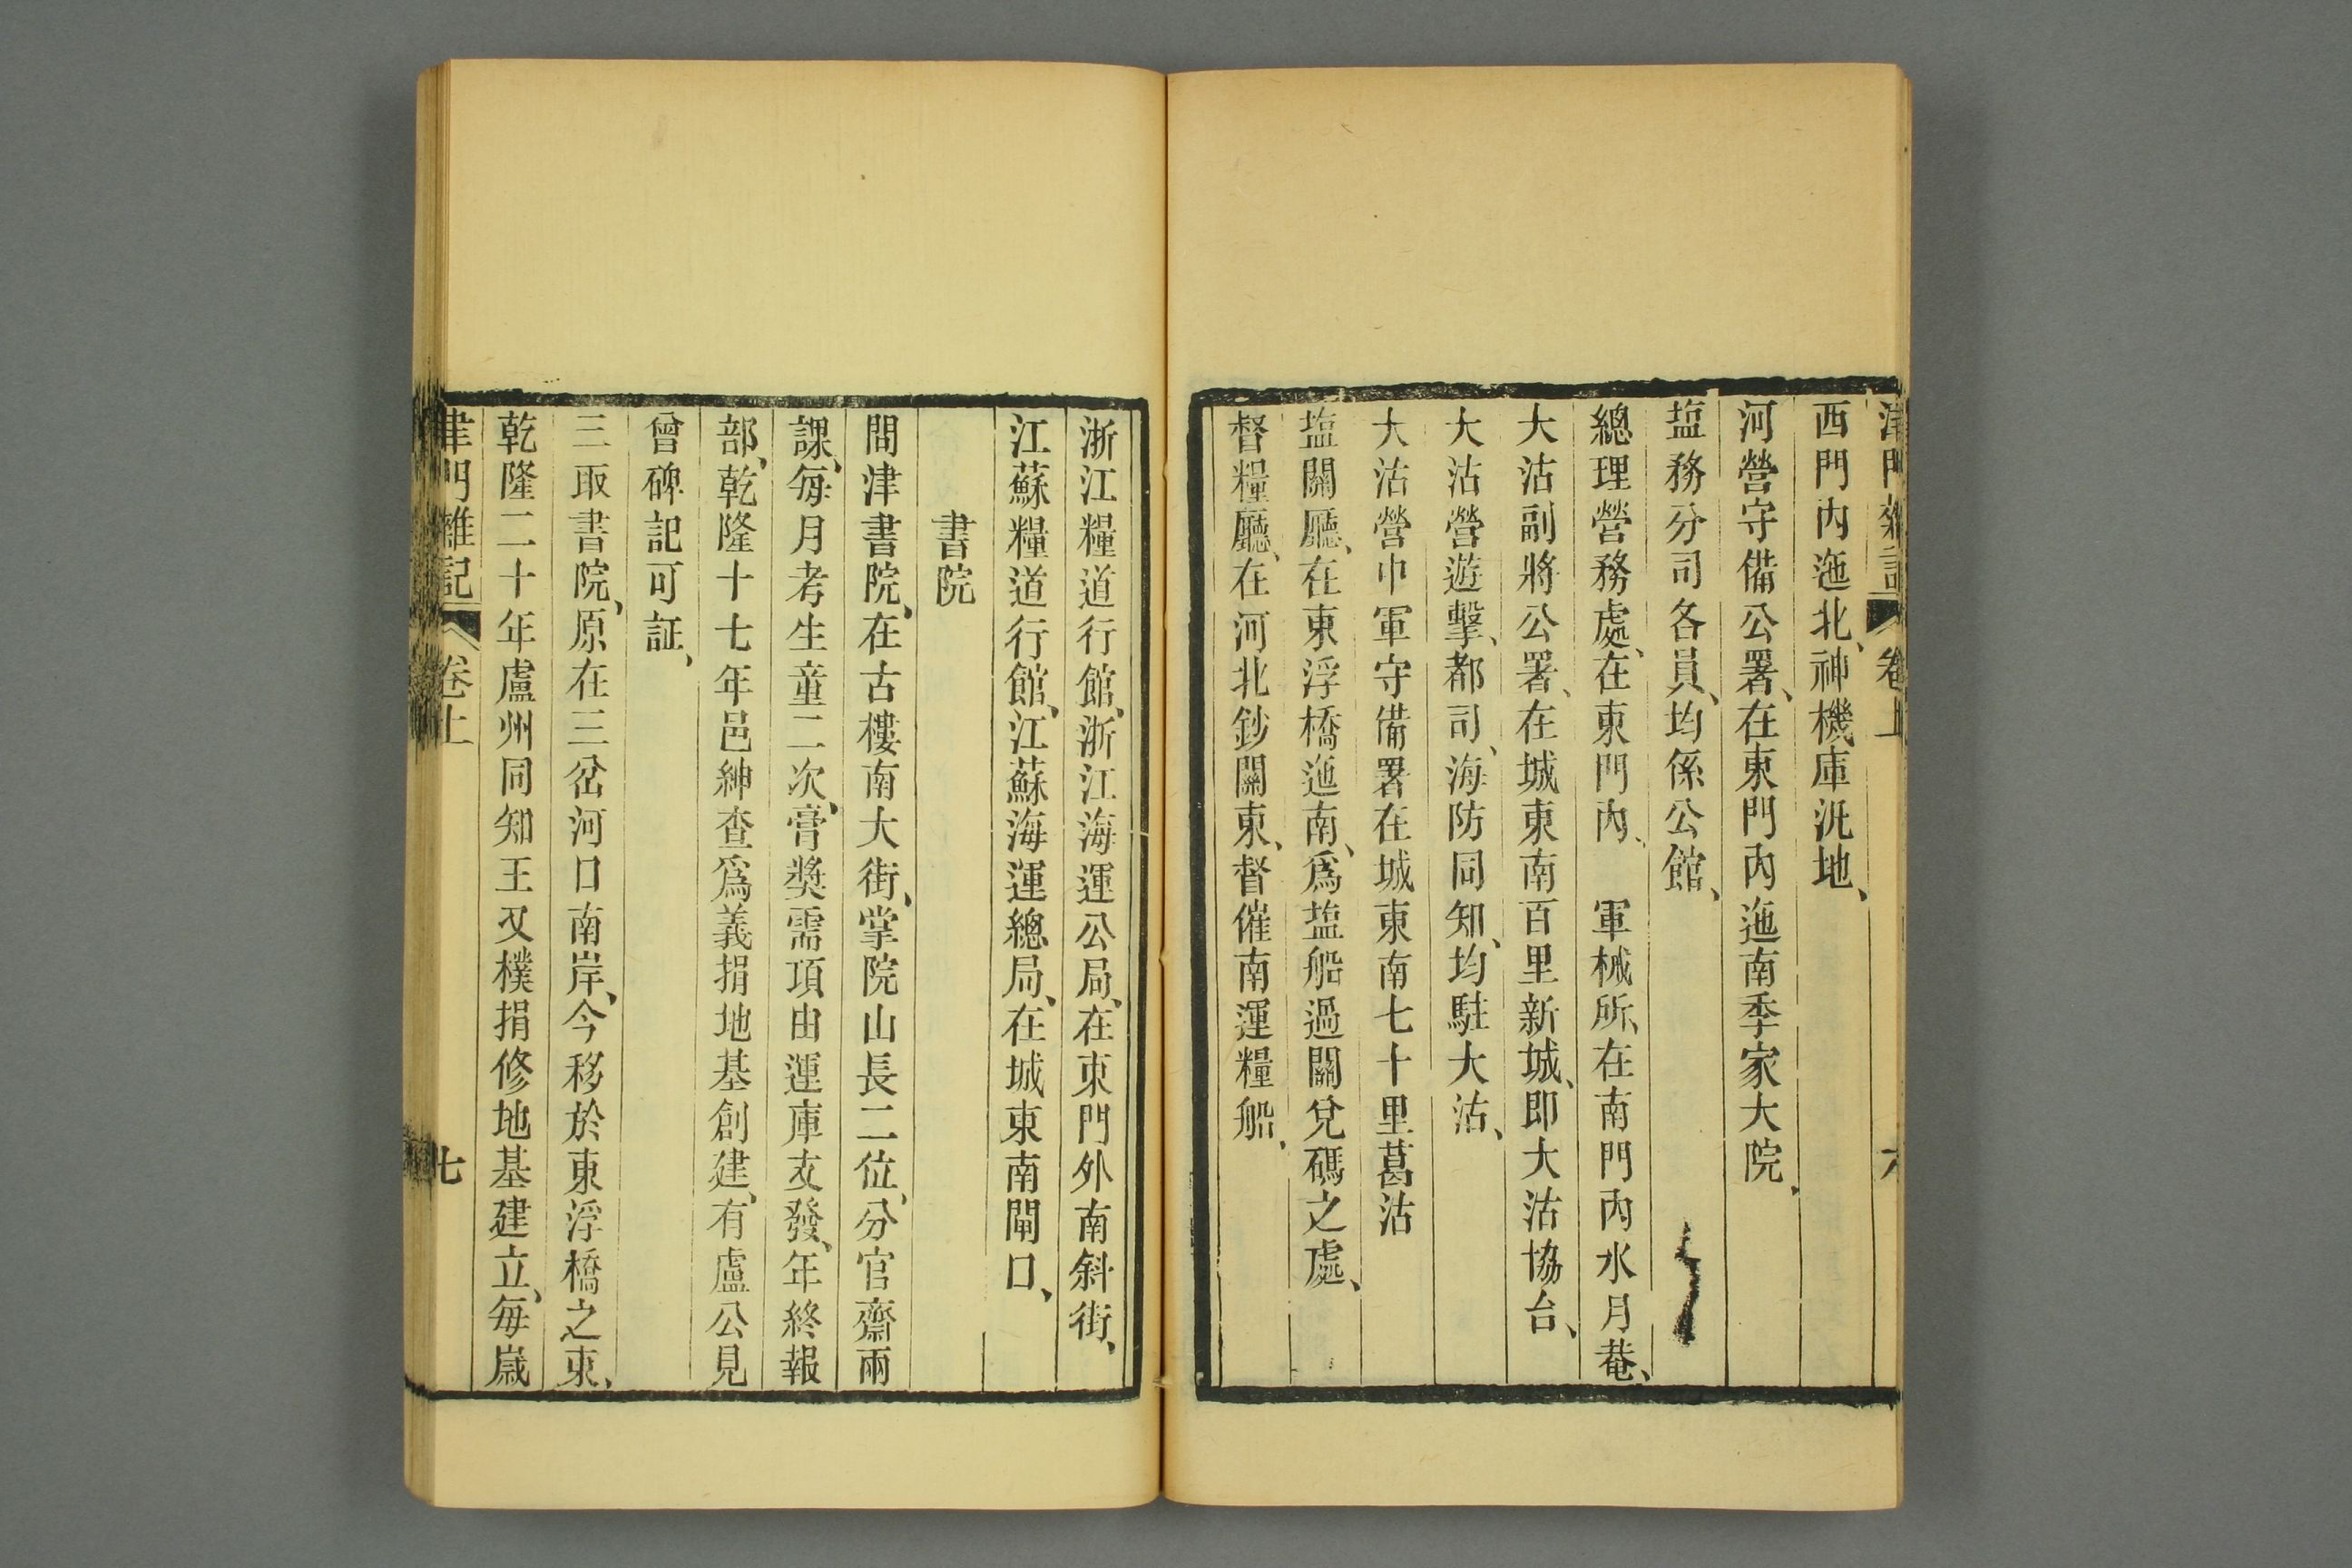 津門雜記 卷上 六
西門內迤北、神機庫汛地、
河營守備公署、在東門內迤南季家大院、
塩務分司各員、均係公館、
總理營務處、在東門內、　軍械所、在南門內水月菴、
大沽副將公署、在城東南百里新城、即大沽協台、
大沽營遊擊、都司、海防同知、均駐大沽、
大沽營中軍守備署在城東南七十里葛沽
塩關廳、在東浮橋迤南、爲塩船過關兌碼之處、
督糧廳、在河北鈔關東、督催南運糧船、
浙江糧道行館、浙江海運公局、在東門外南斜街、
江蘇糧道行館、江蘇海運總局、在城東南閘口、
書院
問津書院、在古樓南大街、掌院山長二位、分官齋兩
課、每月考生童二次、膏獎需項由運庫支發、年終報
部、乾隆十七年邑紳查爲義捐地基創建、有盧公見
曾碑記可証、
三取書院、原在三岔河口南岸、今移於東浮橋之東、
乾隆二十年盧州同知王又樸捐修地基建立、每歲
津門雜記 卷上 七